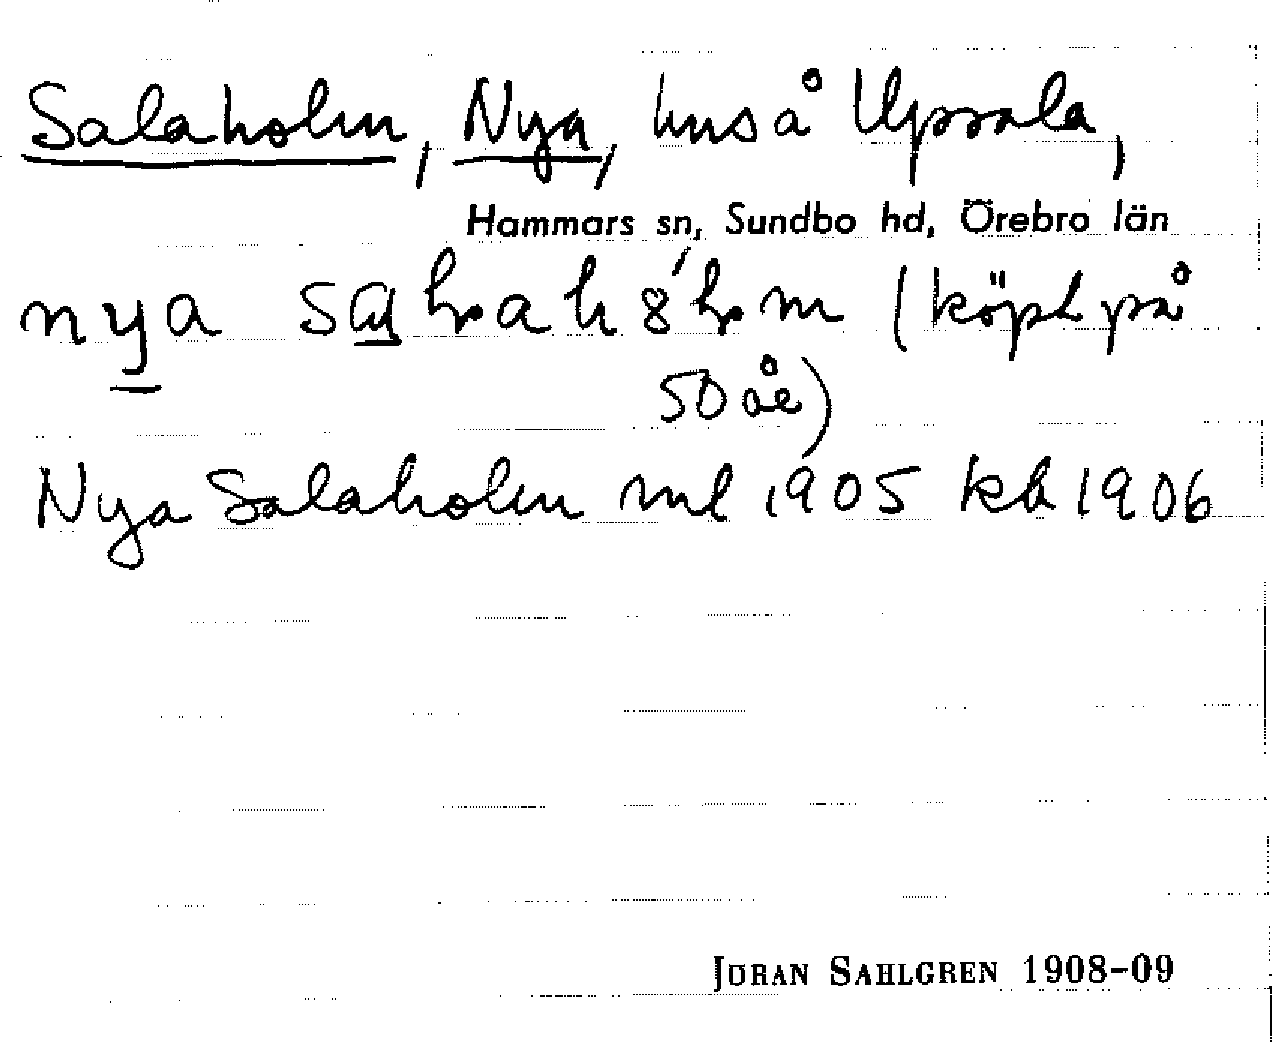 Salaholm, Nya, hus å Upsala,
Hammars sn, Sundbo hd, Örebro län
nya (köpt på
50 åe)
Nya Salaholm ml 1905 kb 1906
JÖRAN SAHLGREN 1908-09